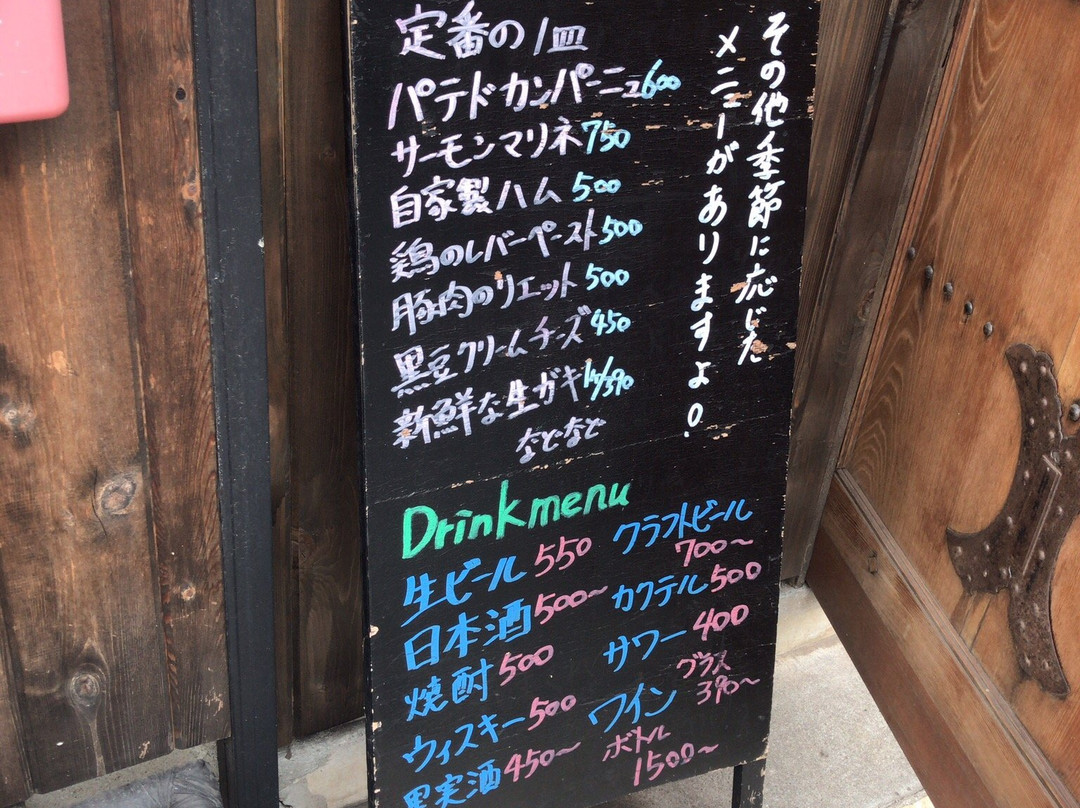 定番の1皿
パテドカンパーニュ600
サーモンマリネ750
自家製ハム500
鶏のレバーペースト500
豚肉のリエット500
黒豆クリームチーズ450
新鮮な生ガキ1ケ/390
などなど
その他季節に応じた
メニューがありますよ。
Drink menu
生ビール550
日本酒500～
焼酎500
ウィスキー500
果実酒450～
クラフトビール
700～
カクテル500
サワー400
ワイン
グラス
390～
ボトル
1500～